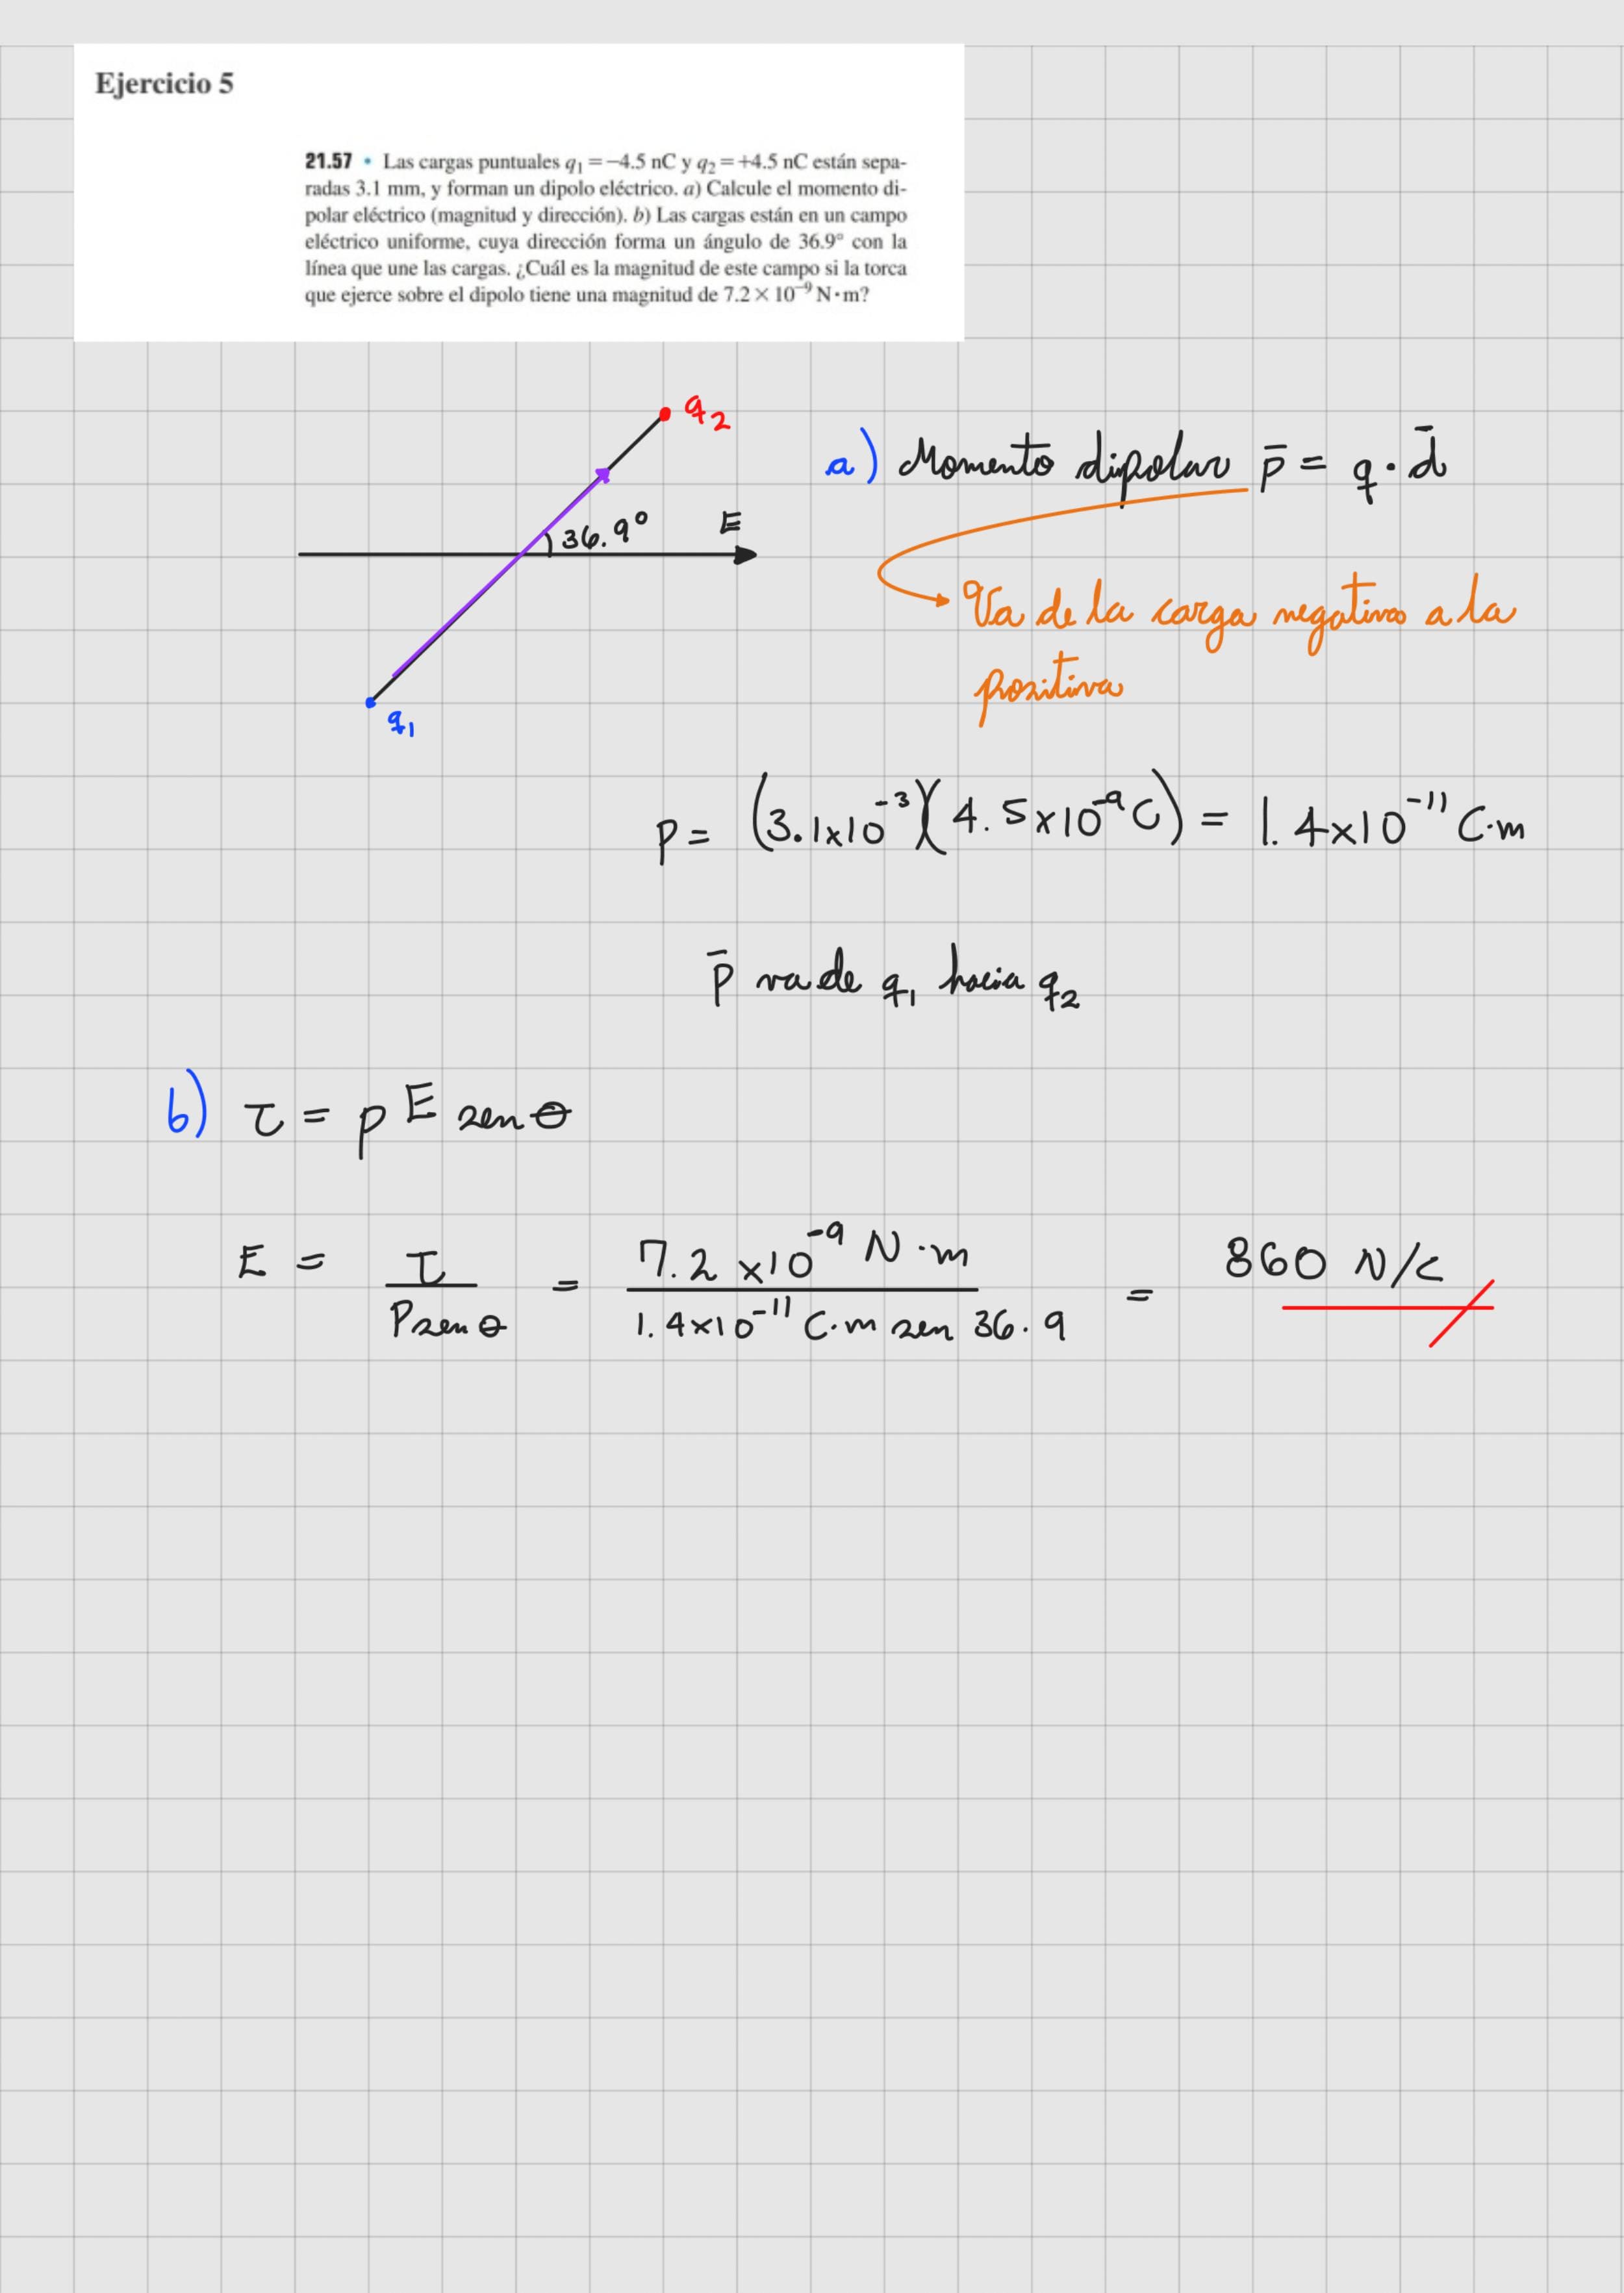 Ejercicio 5
21.57 • Las cargas puntuales q₁ = −4.5 nC y q₂ = +4.5 nC están sepa-
radas 3.1 mm, y forman un dipolo eléctrico. a) Calcule el momento di-
polar eléctrico (magnitud y dirección). b) Las cargas están en un campo
eléctrico uniforme, cuya dirección forma un ángulo de 36.9° con la
línea que une las cargas. ¿Cuál es la magnitud de este campo si la torca
que ejerce sobre el dipolo tiene una magnitud de 7.2 × 10⁻⁹ N·m?
q₂
36.9°
E
q₁
a) Momento dipolar p̄ = q · d̄
Va de la carga negativa a la
positiva
p = (3.1x10⁻³)(4.5x10⁻⁹C) = 1.4x10⁻¹¹ C·m
p̄ va de q₁ hacia q₂
b) τ = p E sen θ
E = τ / p sen θ = 7.2 x10⁻⁹ N·m / 1.4x10⁻¹¹ C·m sen 36.9 = 860 N/C